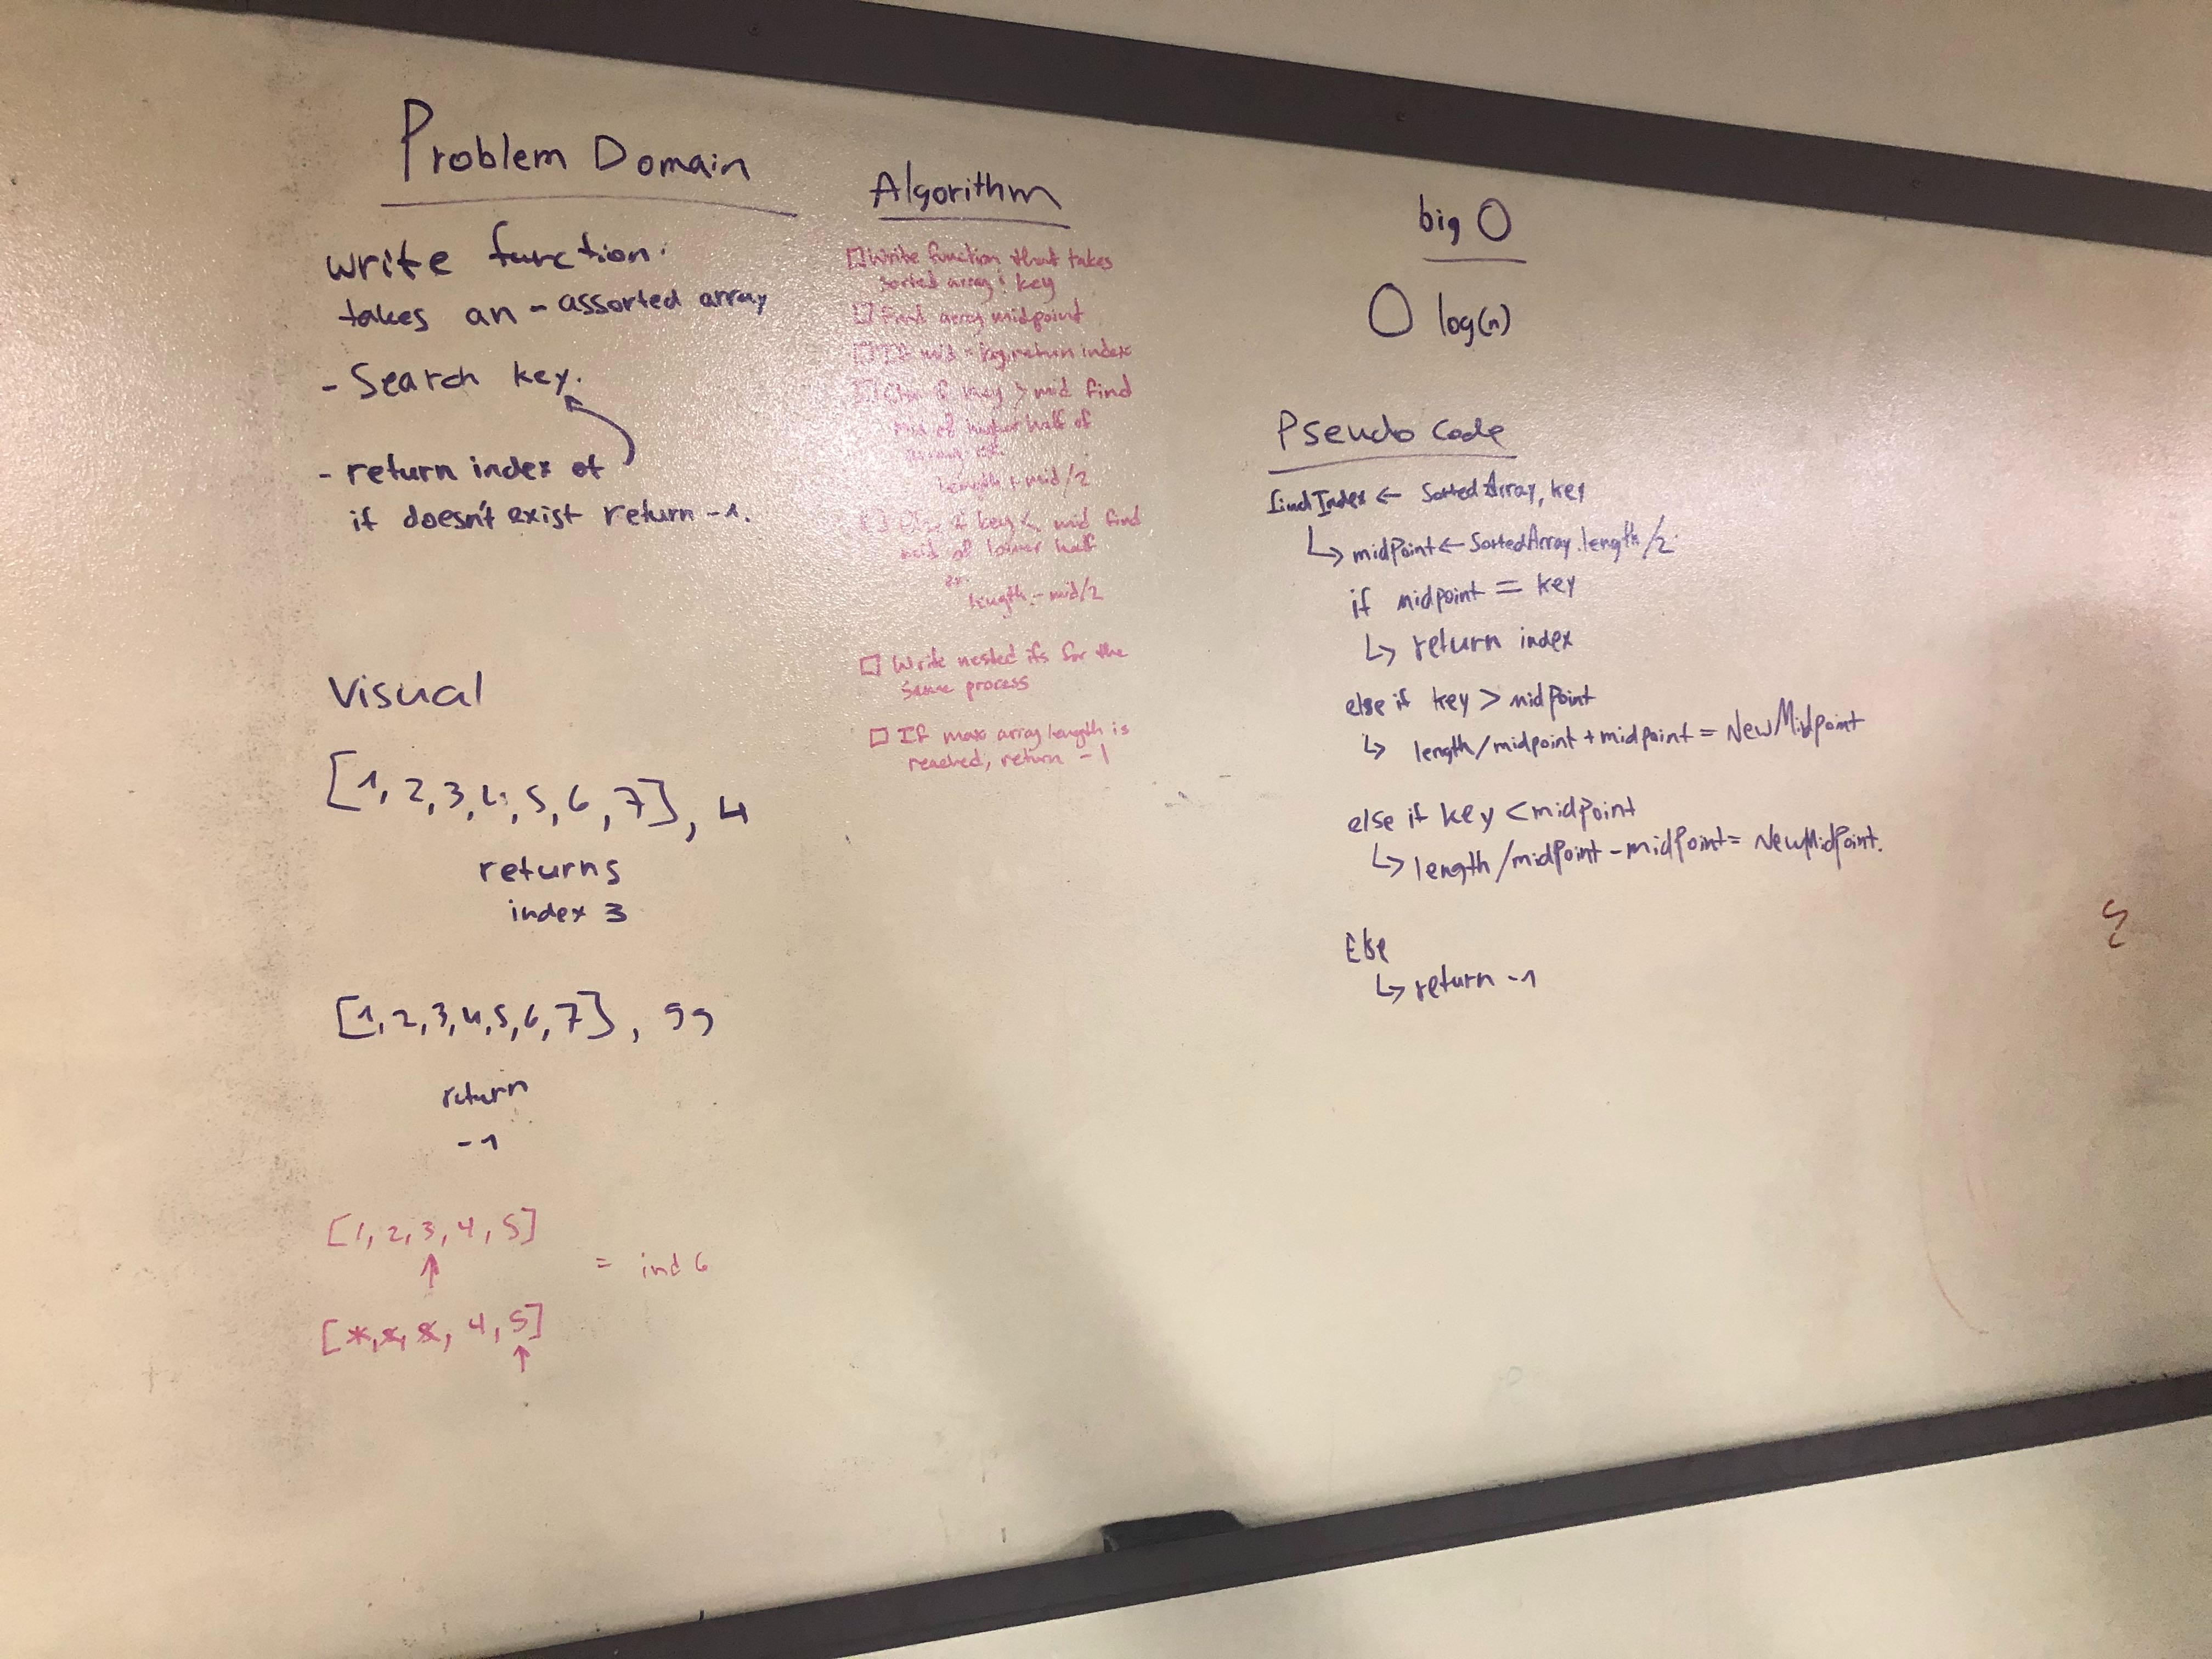 Problem Domain
write function.
takes an - assorted array
- Search key.
- return index of
if doesn't exist return -1.
Visual
[1, 2, 3, 4, 5, 6, 7], 4
returns
index 3
[1, 2, 3, 4, 5, 6, 7], 99
return
-1
[1, 2, 3, 4, 5]
= ind 6
4, 5]
Algorithm
Write function that takes
sorted array & key
Find array midpoint
If mid = key, return index
key > mid find
mid of higher half of
array
length + mid/2
key < mid find
mid of lower half
ex.
length - mid/2
Write nested ifs for the
same process
If max array length is
reached, return -1
big O
O log(n)
Pseudo Code
findIndex ← SortedArray, key
↳ midpoint ← SortedArray.length/2
if midpoint = key
↳ return index
else if key > midpoint
↳ length/midpoint + midpoint = NewMidpoint
else if key < midpoint
↳ length/midpoint - midpoint = NewMidpoint.
Else
↳ return -1